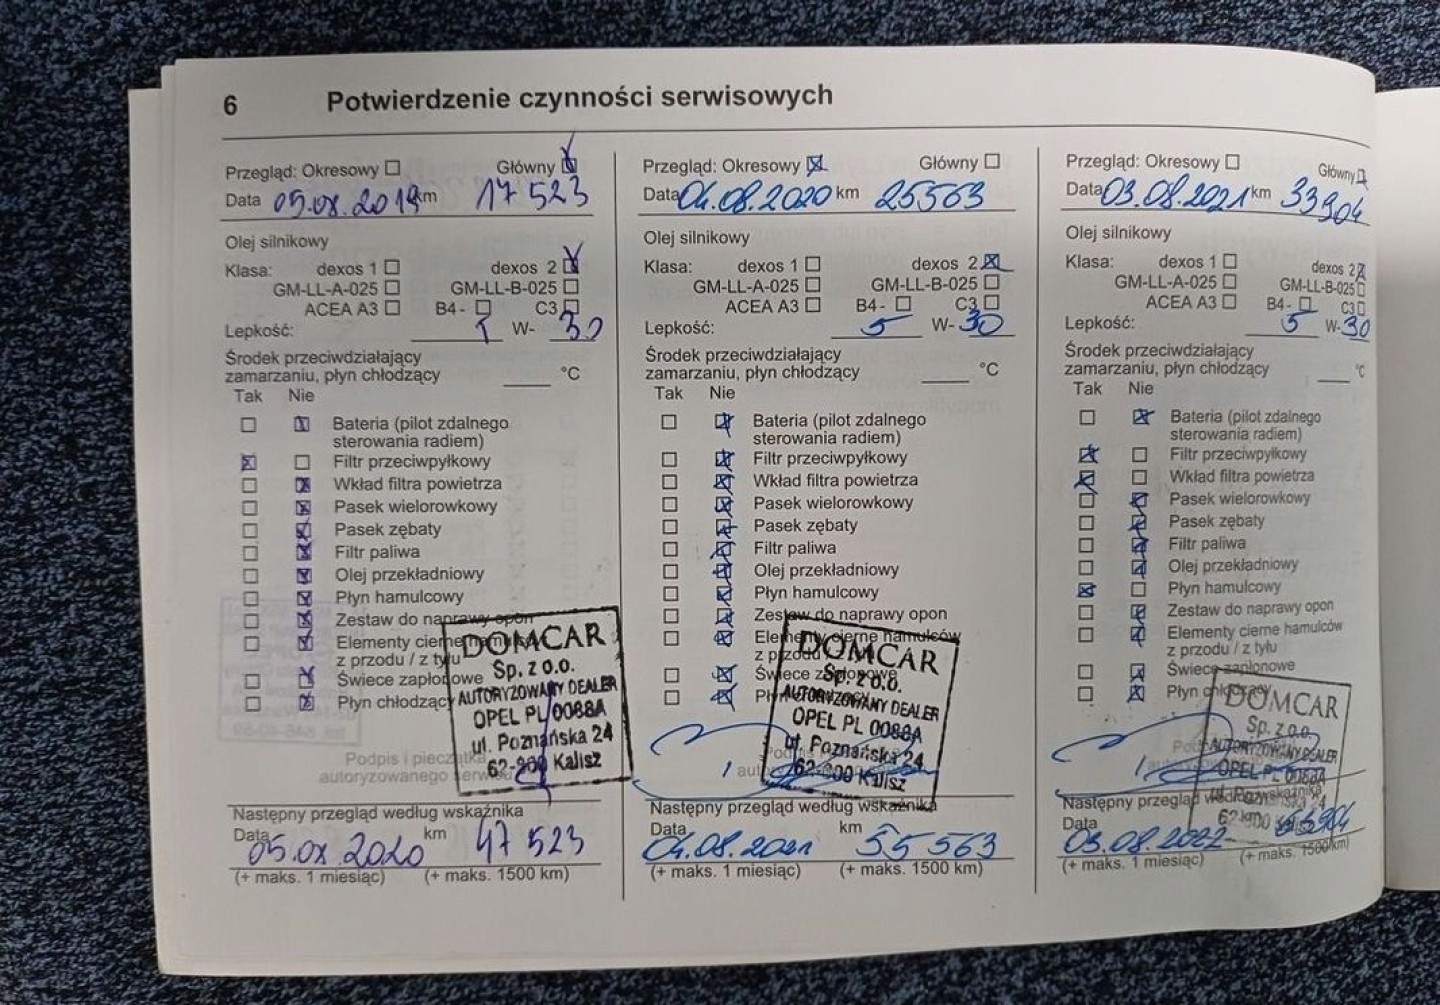 6 Potwierdzenie czynności serwisowych
Przegląd: Okresowy Główny
Data 05.08.2019 km 17 523
Olej silnikowy
Klasa: dexos 1 dexos 2
GM-LL-A-025 GM-LL-B-025
ACEA A3 B4- C3
Lepkość: W- 30
Środek przeciwdziałający
zamarzaniu, płyn chłodzący °C
Tak Nie
Bateria (pilot zdalnego
sterowania radiem)
Filtr przeciwpyłkowy
Wkład filtra powietrza
Pasek wielorowkowy
Pasek zębaty
Filtr paliwa
Olej przekładniowy
Płyn hamulcowy
Zestaw do naprawy opon
Elementy cierne
z przodu / z tyłu
Świece zapłonowe
Płyn chłodzący
DOMCAR
Sp. z o.o.
AUTORYZOWANY DEALER
OPEL PL 0088A
ul. Poznańska 24
62-800 Kalisz
Podpis i pieczątka
autoryzowanego serwisu
Następny przegląd według wskaźnika
Data 05.08.2020 km 47 523
(+ maks. 1 miesiąc) (+ maks. 1500 km)
Przegląd: Okresowy Główny
Data 04.08.2020 km 25563
Olej silnikowy
Klasa: dexos 1 dexos 2
GM-LL-A-025 GM-LL-B-025
ACEA A3 B4- C3
Lepkość: 5 W- 30
Środek przeciwdziałający
zamarzaniu, płyn chłodzący °C
Tak Nie
Bateria (pilot zdalnego
sterowania radiem)
Filtr przeciwpyłkowy
Wkład filtra powietrza
Pasek wielorowkowy
Pasek zębaty
Filtr paliwa
Olej przekładniowy
Płyn hamulcowy
Zestaw do naprawy opon
Elementy cierne hamulców
z przodu
Świece zapłonowe
DOMCAR
Sp. z o.o.
AUTORYZOWANY DEALER
OPEL PL 0088A
ul. Poznańska 24
62-800 Kalisz
Następny przegląd według wskaźnika
Data 04.08.2021 km 55 563
(+ maks. 1 miesiąc) (+ maks. 1500 km)
Przegląd: Okresowy Główny
Data 03.08.2021 km 33904
Olej silnikowy
Klasa: dexos 1 dexos 2
GM-LL-A-025 GM-LL-B-025
ACEA A3 B4- C3
Lepkość: 5 W- 30
Środek przeciwdziałający
zamarzaniu, płyn chłodzący °C
Tak Nie
Bateria (pilot zdalnego
sterowania radiem)
Filtr przeciwpyłkowy
Wkład filtra powietrza
Pasek wielorowkowy
Pasek zębaty
Filtr paliwa
Olej przekładniowy
Płyn hamulcowy
Zestaw do naprawy opon
Elementy cierne hamulców
z przodu / z tyłu
Świece zapłonowe
Płyn chłodzący
DOMCAR
Sp. z o.o.
AUTORYZOWANY DEALER
OPEL PL 0088A
ul. Poznańska 24
62-800 Kalisz
Następny przegląd według wskaźnika
Data 03.08.2022 km
(+ maks. 1 miesiąc) (+ maks. 1500 km)